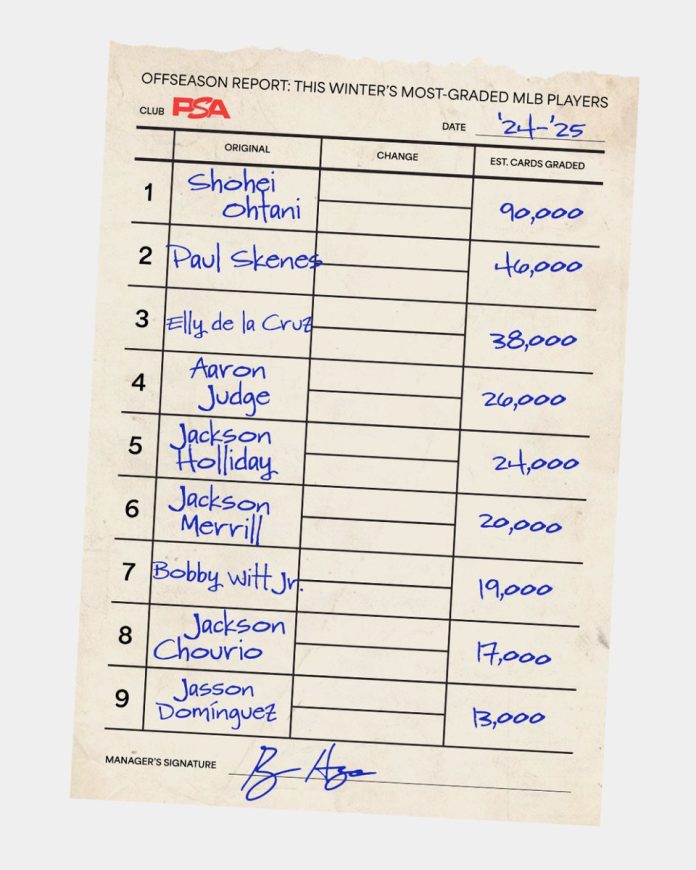 OFFSEASON REPORT: THIS WINTER'S MOST-GRADED MLB PLAYERS
CLUB PSA
DATE '24-'25
ORIGINAL CHANGE EST. CARDS GRADED
1 Shohei
Ohtani 90,000
2 Paul Skenes 46,000
3 Elly de la Cruz 38,000
4 Aaron
Judge 26,000
5 Jackson
Holliday 24,000
6 Jackson
Merrill 20,000
7 Bobby Witt Jr. 19,000
8 Jackson
Chourio 17,000
9 Jasson
Domínguez 13,000
MANAGER'S SIGNATURE